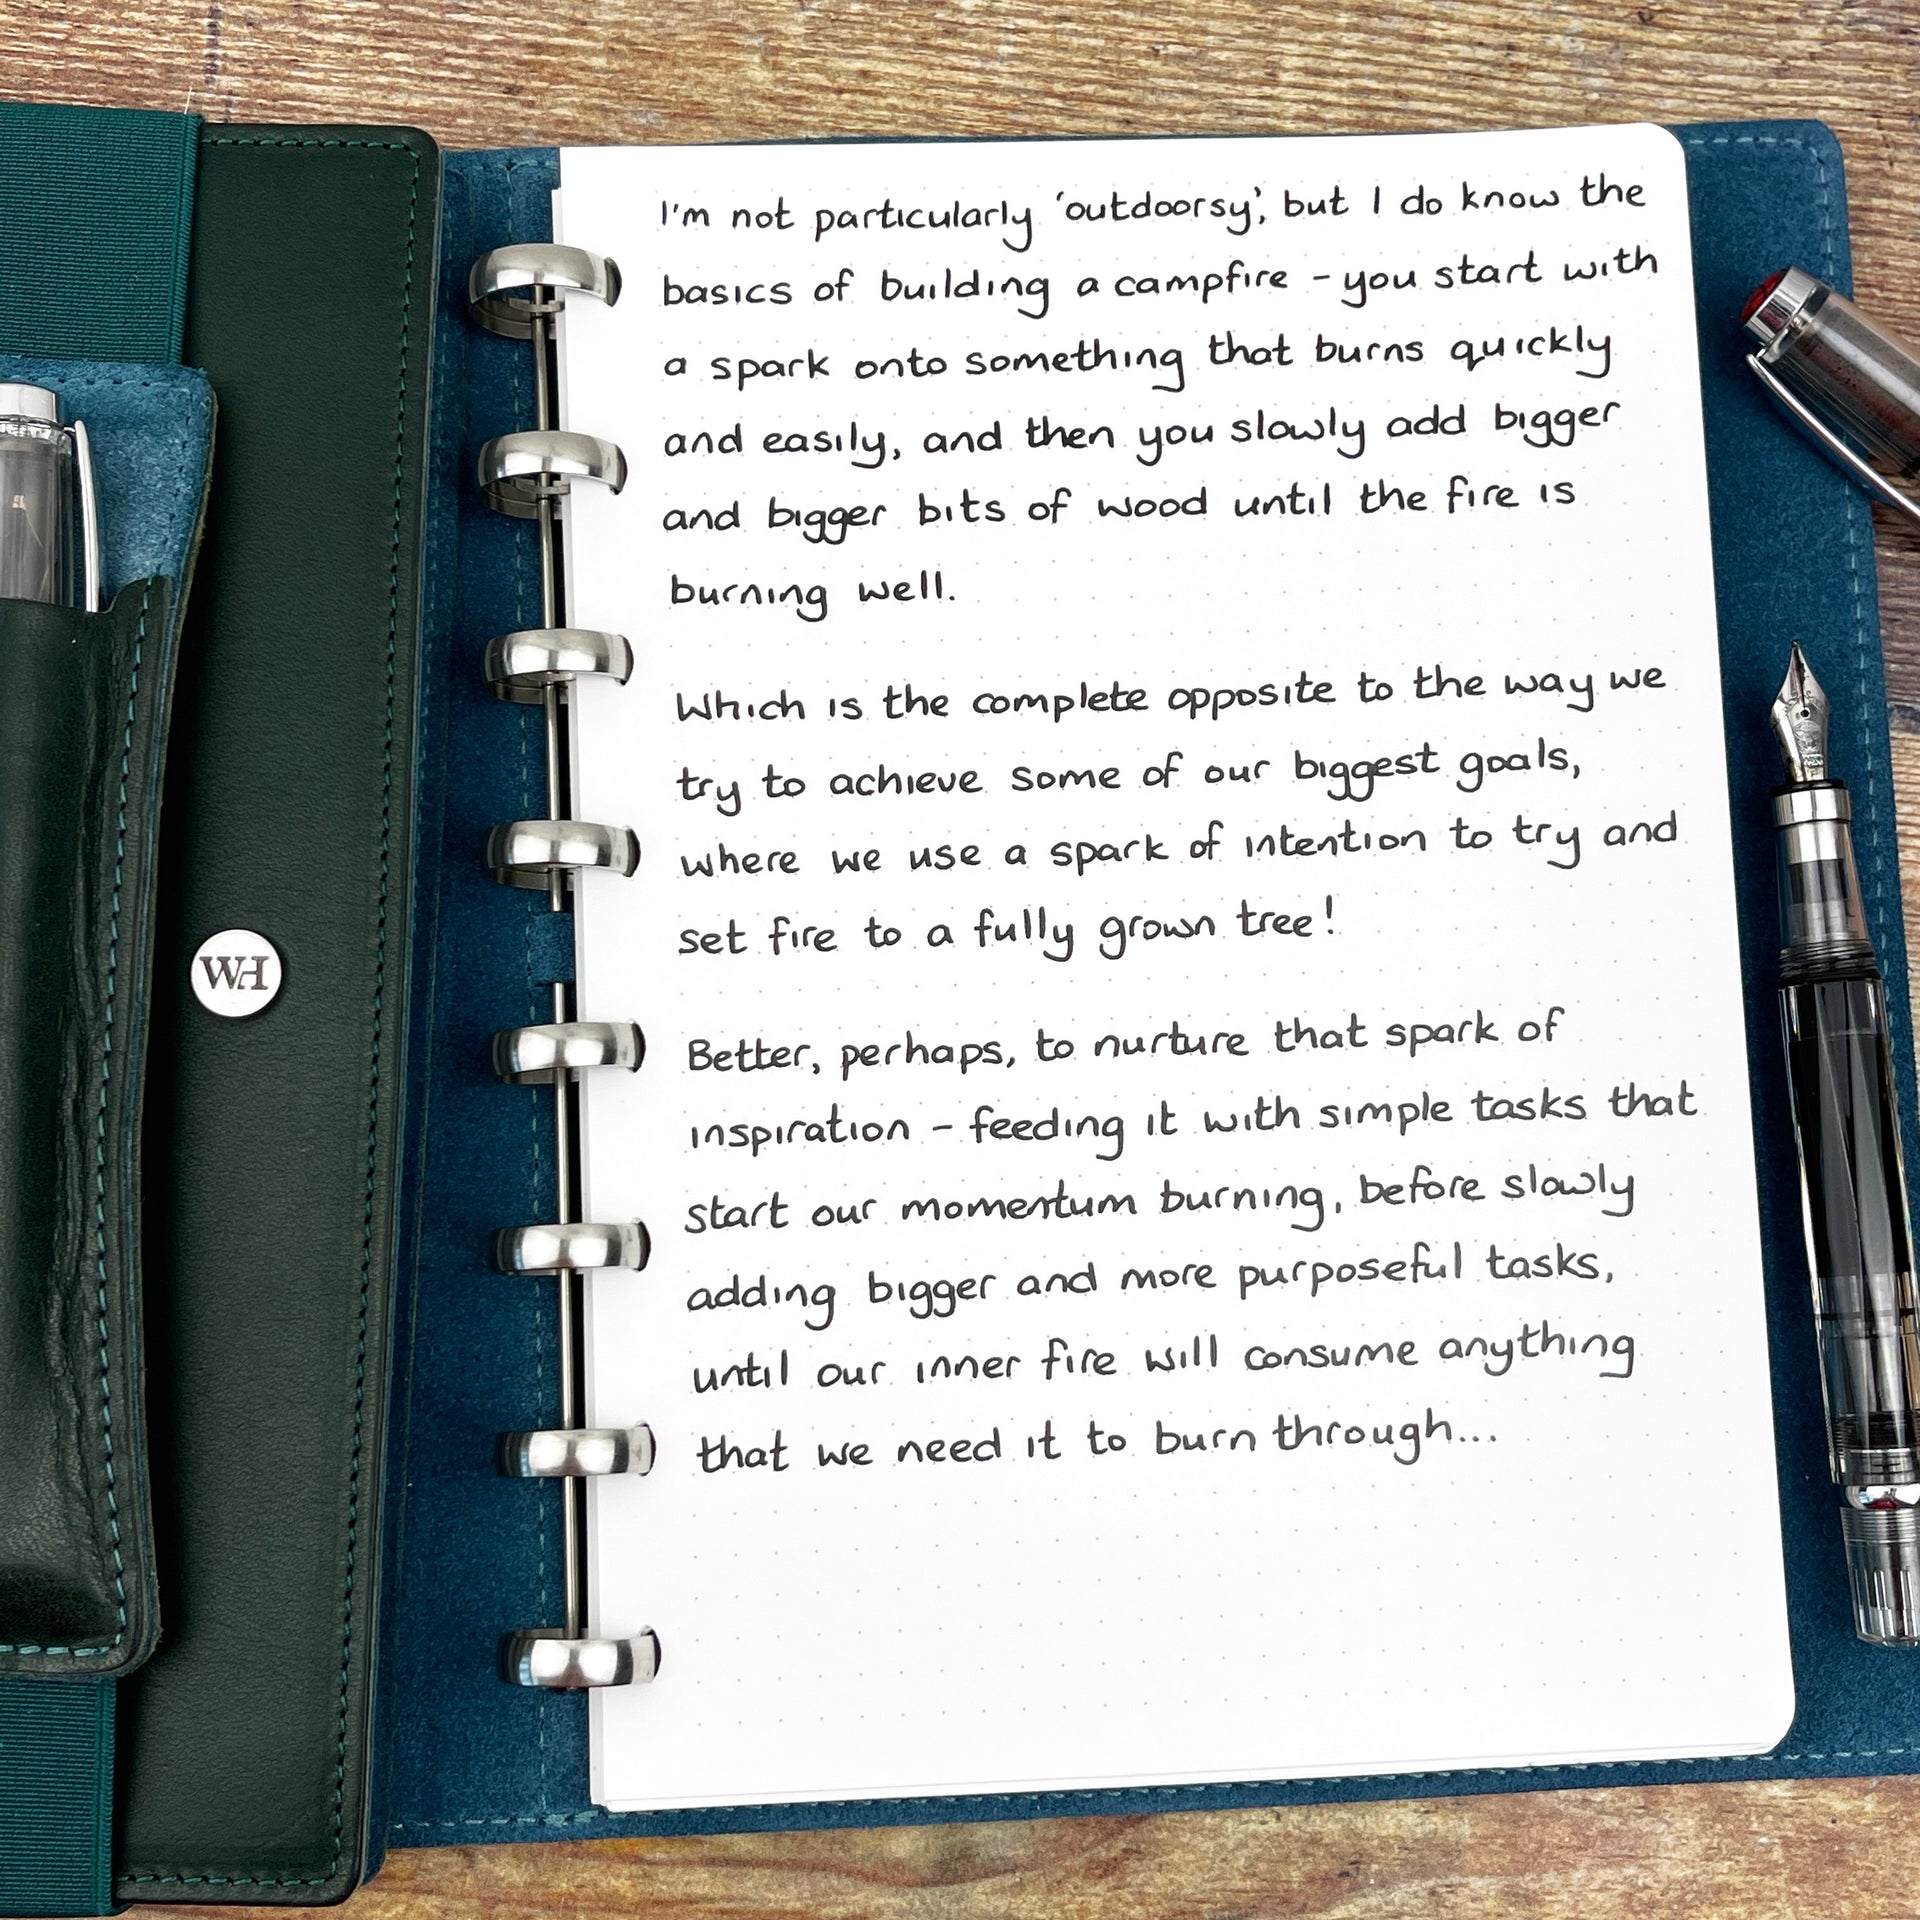 I'm not particularly 'outdoorsy', but I do know the
basics of building a campfire - you start with
a spark onto something that burns quickly
and easily, and then you slowly add bigger
and bigger bits of wood until the fire is
burning well.
Which is the complete opposite to the way we
try to achieve some of our biggest goals,
where we use a spark of intention to try and
set fire to a fully grown tree!
Better, perhaps, to nurture that spark of
inspiration - feeding it with simple tasks that
start our momentum burning, before slowly
adding bigger and more purposeful tasks,
until our inner fire will consume anything
that we need it to burn through...
WH